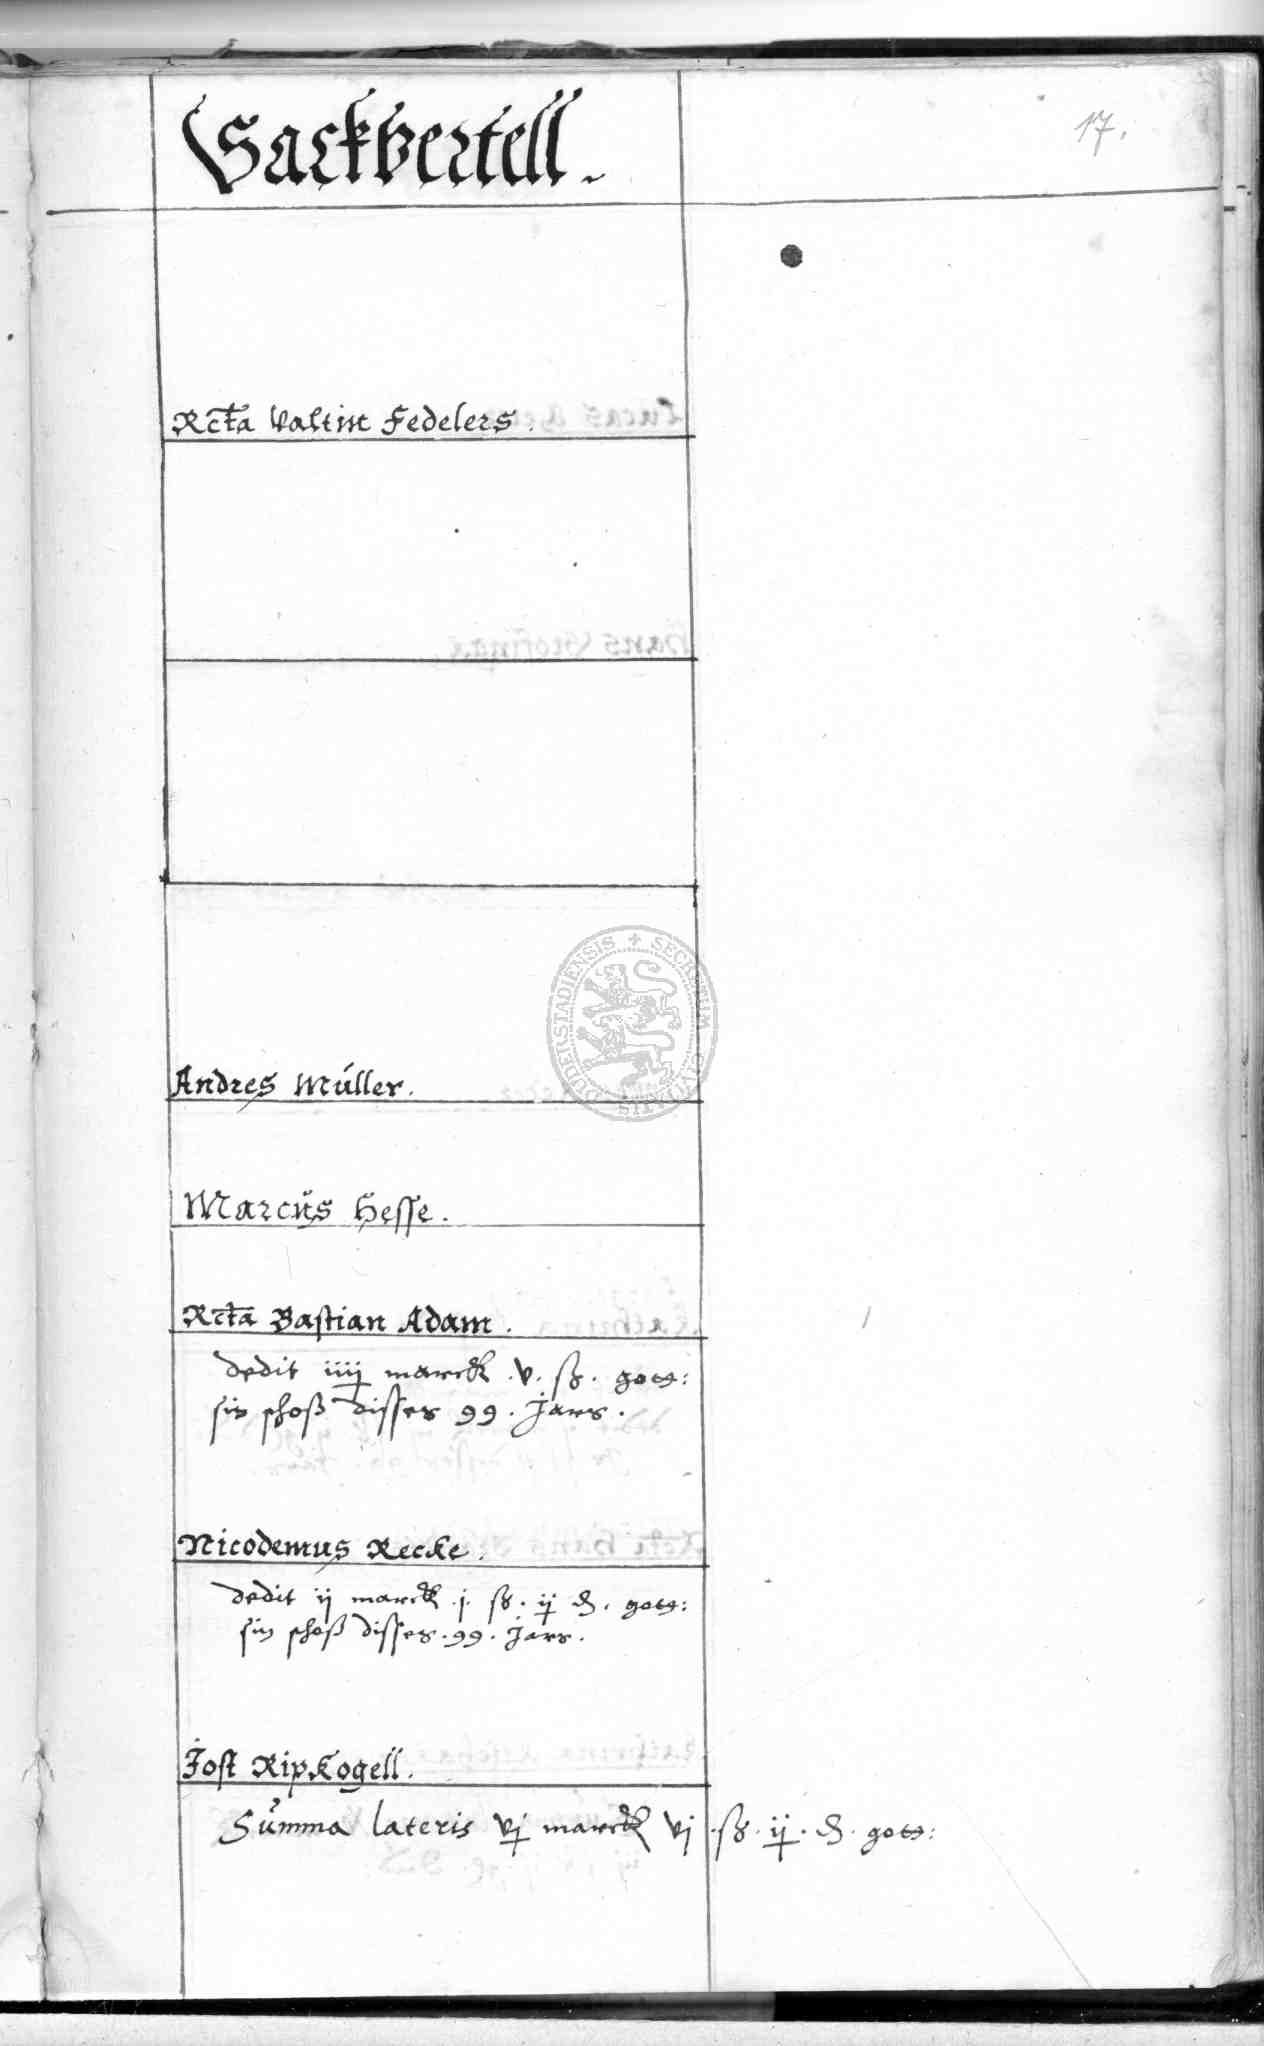 Sackvertell.
17.
Rcta Valtin Fedelers.
Andres Müller.
Marcus Hesse.
Rcta Bastian Adam.
dedit iiij marck .v. ß. gott:
sin schoß disses 99. Jars.
Nicodemus Recke.
dedit ij marck .j. ß. ij ₰. gott:
sin schoß disses .99. Jars.
Jost Ripkogell.
Summa lateris vj marck vj .ß. ij. ₰. gott:
SECRETUM CIVITATIS DUDERSTADIENSIS